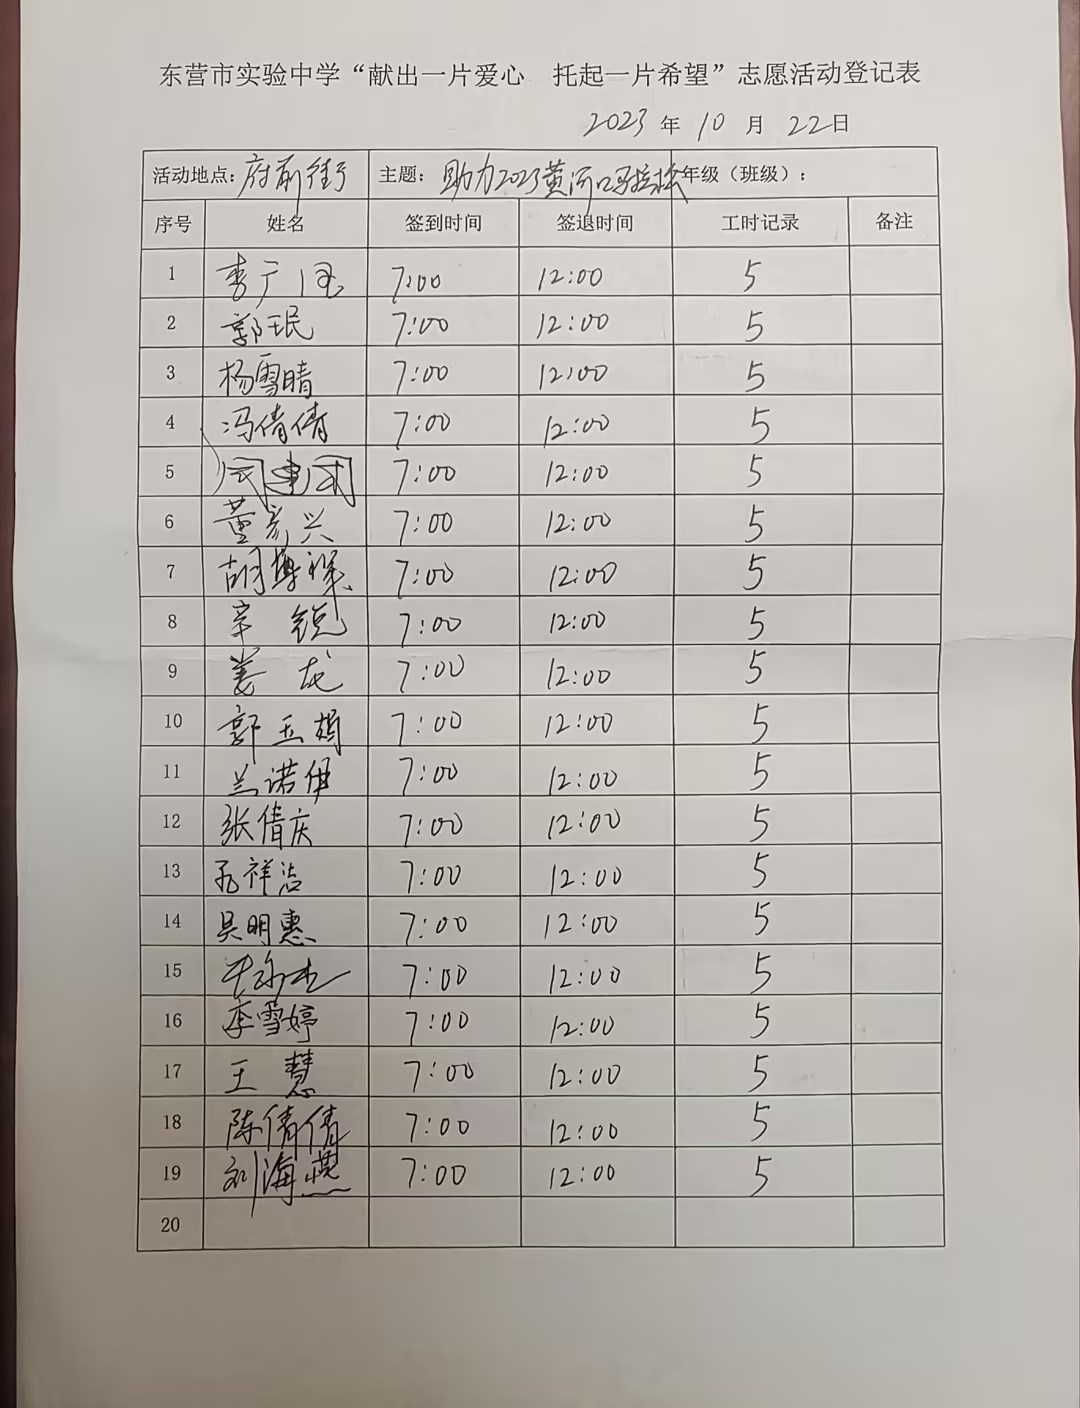 东营市实验中学“献出一片爱心 托起一片希望”志愿活动登记表
2023 年 10 月 22日
活动地点：府前街 主题：助力2023黄河口马拉松 年级（班级）：
序号 姓名 签到时间 签退时间 工时记录 备注
1 李广国 7:00 12:00 5
2 郭珉 7:00 12:00 5
3 杨雪晴 7:00 12:00 5
4 冯倩倩 7:00 12:00 5
5 7:00 12:00 5
6 董彦兴 7:00 12:00 5
7 胡博琛 7:00 12:00 5
8 辛锐 7:00 12:00 5
9 姜龙 7:00 12:00 5
10 郭玉娟 7:00 12:00 5
11 兰诺伊 7:00 12:00 5
12 张倩庆 7:00 12:00 5
13 孔祥洁 7:00 12:00 5
14 吴明惠 7:00 12:00 5
15 7:00 12:00 5
16 李雪婷 7:00 12:00 5
17 王慧 7:00 12:00 5
18 陈倩倩 7:00 12:00 5
19 刘海燕 7:00 12:00 5
20